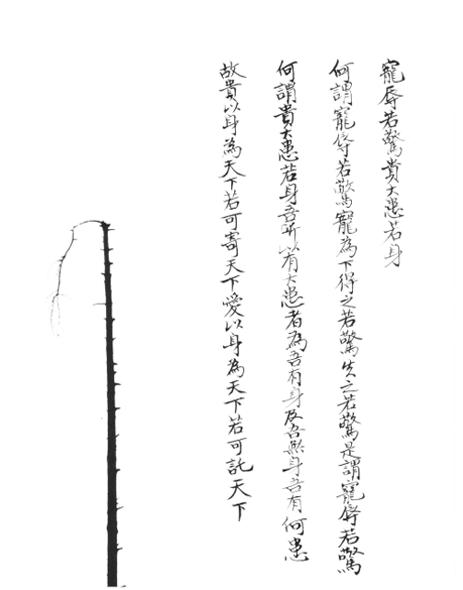 寵辱若驚貴大患若身
何謂寵辱若驚寵為下得之若驚失之若驚是謂寵辱若驚
何謂貴大患若身吾所以有大患者為吾有身及吾無身吾有何患
故貴以身為天下若可寄天下愛以身為天下若可託天下